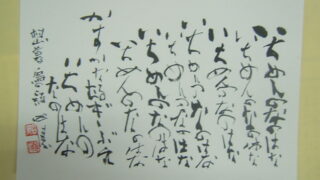 いちめんのなのはな
いちめんのなのはな
いちめんのなのはな
いちめんのなのはな
いちめんのなのはな
いちめんのなのはな
いちめんのなのはな
かすかなるむぎぶえ
いちめんの
なのはな